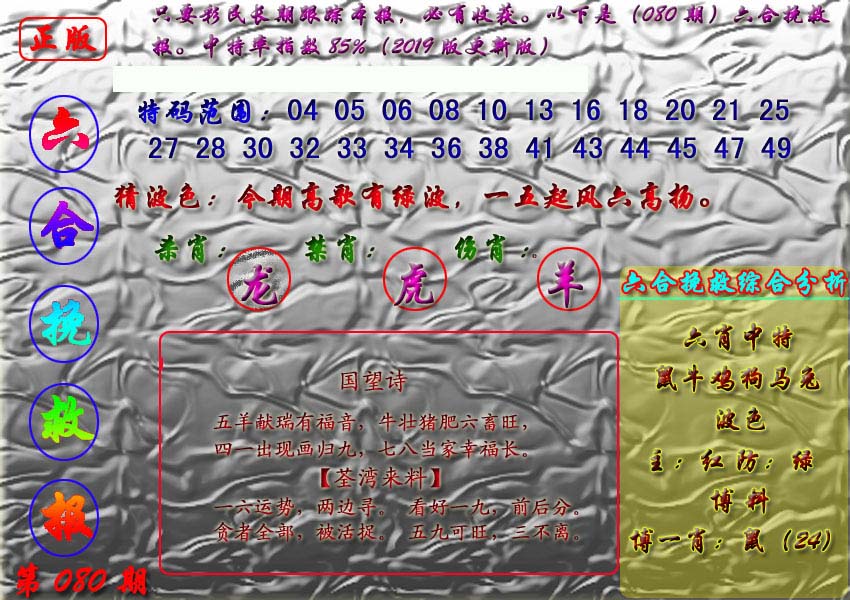 正版
只要彩民长期跟踪本报，必有收获。以下是（080期）六合挽救
报。中特率指数85%（2019版更新版）
六合挽救报
第080期
特码范围：04 05 06 08 10 13 16 18 20 21 25
27 28 30 32 33 34 36 38 41 43 44 45 47 49
猜波色：今期高歌有绿波，一五起风六高扬。
杀肖：龙 禁肖：虎 伤肖：。羊
国望诗
五羊献瑞有福音，牛壮猪肥六畜旺，
四一出现画归九，七八当家幸福长。
【荃湾来料】
一六运势，两边寻。 看好一九，前后分。
贪者全部，被活捉。 五九可旺，三不离。
六合挽救综合分析
六肖中特
鼠牛鸡狗马兔
波色
主：红防：绿
博料
博一肖：鼠（24）